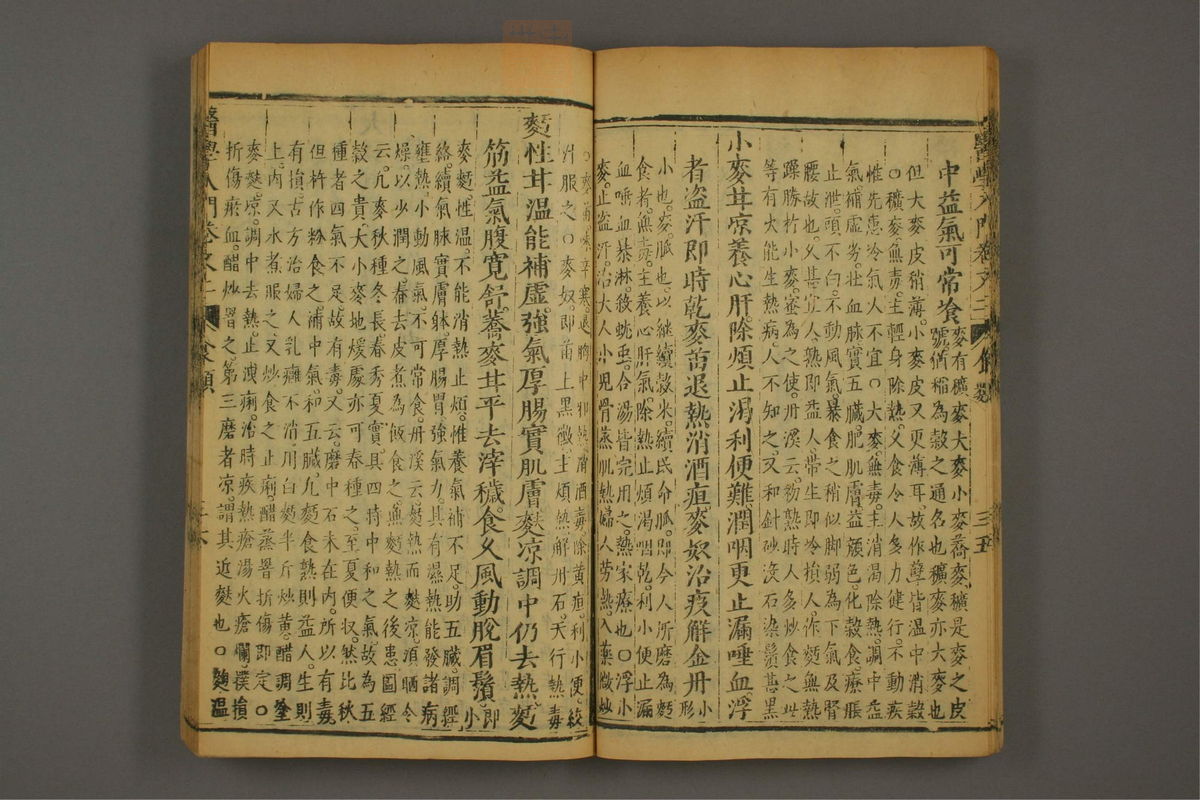 醫學入門卷之二 食類 三五
中益氣可常飡麥有穬麥大麥小麥蕎麥穬是麥之皮
號猶稻為穀之通名也穬麥亦大麥也
但大麥皮稍薄小麥皮又更薄耳故作孽皆溫中消穀
○穬麥無毒主輕身除熱久食令人多力健行不動疾
惟先患冷氣人不宜○大麥無毒主消渴除熱調中益
氣補虛劣壯血脉實五臟肥肌膚益顏色化穀食療脹
止泄頭不白不動風氣暴食之稍似脚弱為下氣及腎
腰故也久甚宜人熟即益人帶生即冷損人作麪無熱
躁勝於小麥蜜為之使丹溪云初熟時人多炒食之此
等有火能生熱病人不知之又和針砂沒石染鬚甚黑
小麥甘凉養心肝除煩止渴利便難潤咽更止漏唾血浮
者盜汗即時乾麥苗退熱消酒疸麥奴治疫解金丹小
形
小也麥脉也以継續穀米續民命脉即今人所磨為麪
食者無毒主養心肝氣除熱止煩渴咽乾利小便止漏
血唾血暴淋殺蚘䖝合湯皆完用之熱家療也○浮小
麥止盜汗治大人小児骨蒸肌熱婦人勞熱入藥微炒
○麥苗味辛寒退胸中邪熱消酒毒除黃疸利小便絞
汁服之○麥奴即苗上黑黴主煩熱解丹石天行熱毒
麪性甘温能補虛強氣厚腸實肌膚麩凉調中仍去熱麪
筋益氣腹寬舒蕎麥甘平去滓穢食久風動脫眉鬚即
小
麥麪性温不能消熱止煩惟養氣補不足助五臟調經
絡續氣脉實膚躰厚腸胃強氣力其有濕熱能發諸病
壅熱小動風氣不可常食丹溪云麪熱而麩凉湏晒令
燥以少潤之舂去皮煮為飯食之無麪熱之後患圖經
云凡麥秋種冬長春秀夏實具四時中和之氣故為五
穀之貴大小麥地煖處亦可春種之至夏便収然比秋
種者四氣不足故有毒又云磨中石末在內所以有毒
但杵作粉食之補中氣和五臟凡麪食熟則益人生則
有損古方治婦人乳癰不消用白麪半斤炒黃醋調塗
上內又水煮服之又炒食之止痢醋蒸罯折傷即定○
麥麩凉調中去熱止洩痢治時疾熱瘡湯火瘡爛撲損
折傷瘀血醋炒罯之第三磨者凉謂其近麩也○麯温
醫學入門卷之二 食類